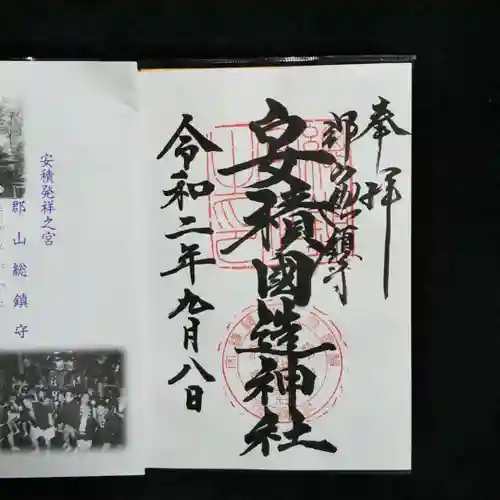 奉拝
郡山総鎮守
安積國造神社
令和二年九月八日
安積発祥之宮
郡山総鎮守